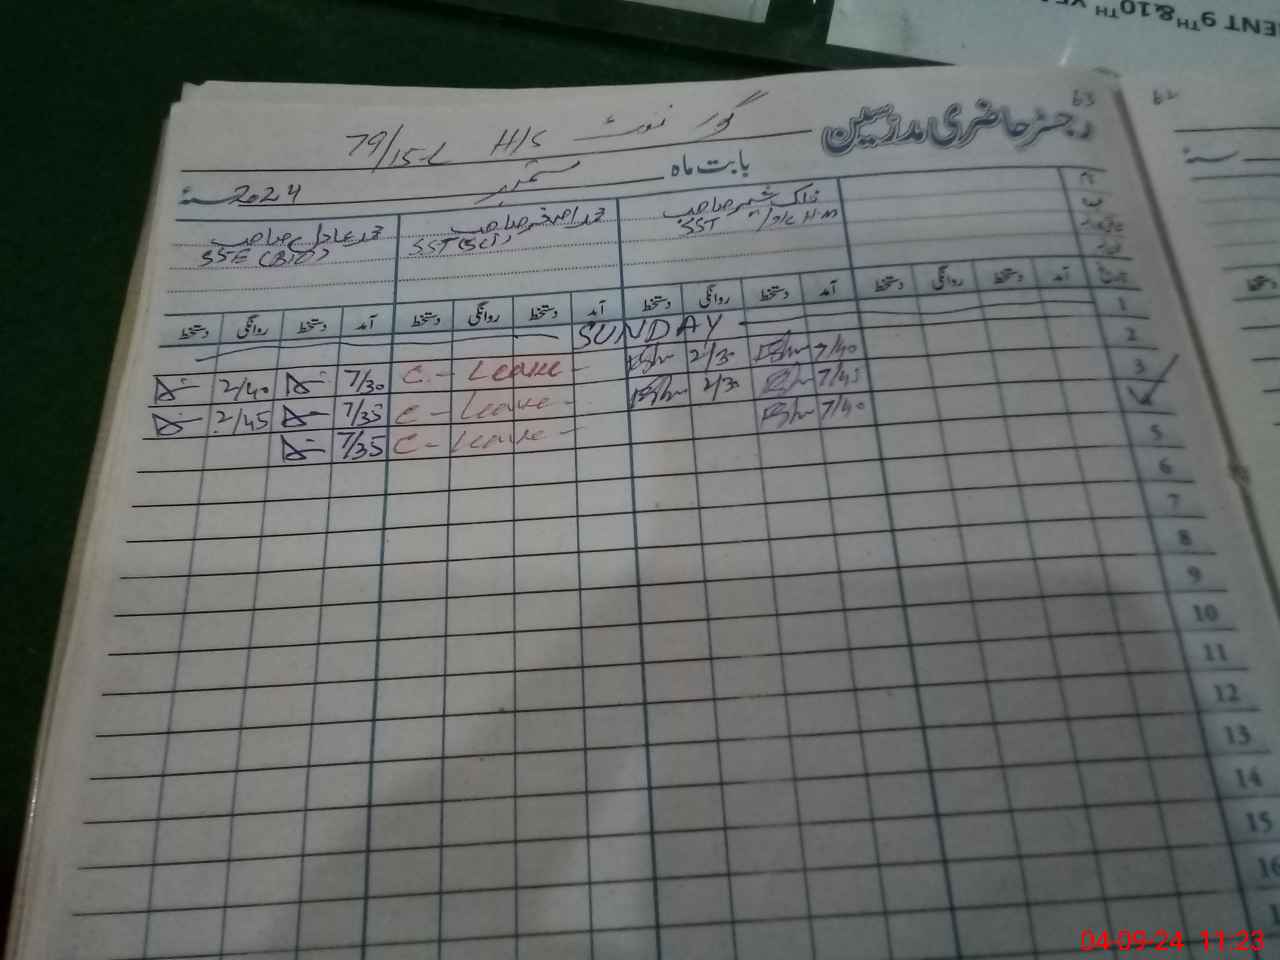 ENT 9TH &10TH
63
62
رجسٹر حاضری مدرسین
گورنمنٹ H/S 79/15-L
بابت ماہ ستمبر سنہ 2024
سنہ
صاحب SST H.M
صاحب SST (SCI)
صاحب SSE (BIO)
تاریخ آمد دستخط روانگی دستخط آمد دستخط روانگی دستخط آمد دستخط روانگی دستخط آمد دستخط روانگی دستخط
1 SUNDAY
2 7/40 2/30 C-Leave 7/30 2/40
3 7/45 2/30 C-Leave 7/35 2/45
7/40 C-Leave 7/35
5
6
7
8
9
10
11
12
13
14
15
16
04-09-24 11:23